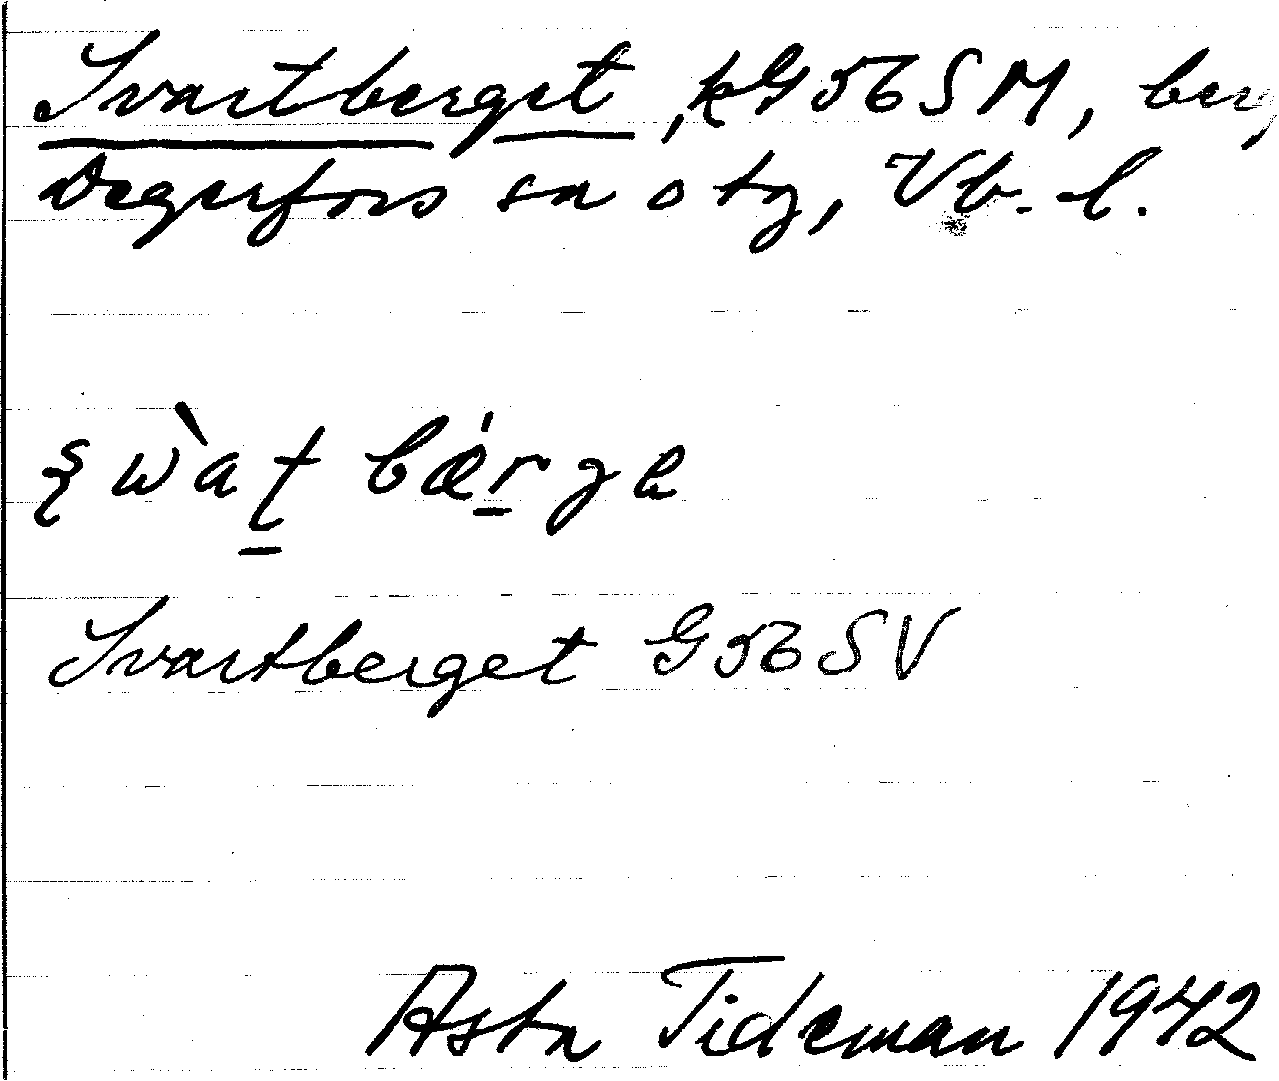 Svartberget, kG56SM, berg
Degerfors sn o tg, Vb. l.
ʂẁaṯ bǽṟgɐ
Svartberget G56SV
Asta Tideman 1942